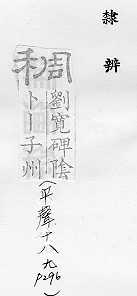 隸辨
周劉寬碑陰
卜子州
(平聲十八尤
P296)